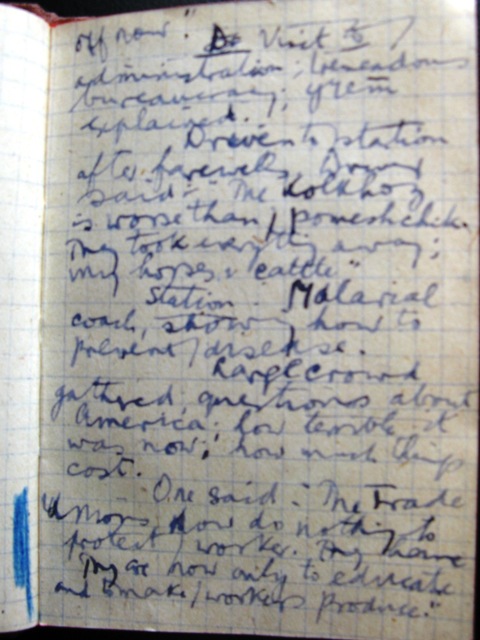 off now." Visit to
administration; tremendous
bureaucracy; system
explained.
Driven to station
after farewells. Driver
said:- "The Kolkhoz
is worse than / pomeshchik.
They took everything away;
my horses & cattle"
Station. Malarial
coach, showing how to
prevent / disease.
Large crowd
gathered; questions about
America; how terrible it
was now; how much things
cost.
One said:- "The Trade
Unions now do nothing to
protect / worker. They have
They are now only to educate
and make / workers produce."